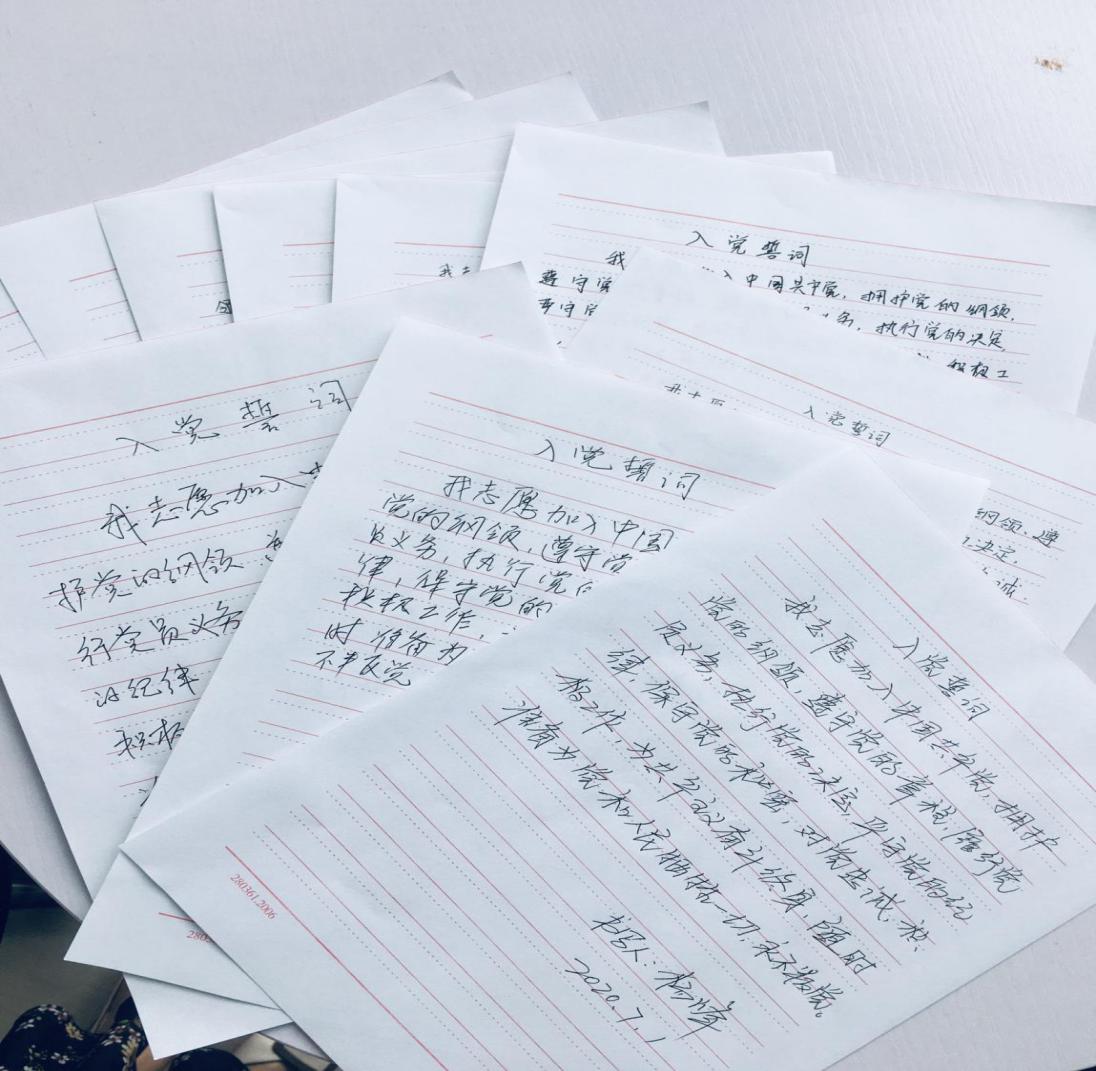 入党誓词
我
入中国共产党，拥护党的纲领，
遵守党
务，执行党的决定，
严守党
积极工
入党誓词
我志愿
纲领，遵
决定，
诚，
入党誓词
我志愿加入
护党的纲领
行党员义务
的纪律
积极
入党誓词
我志愿加入中国
党的纲领，遵守党
员义务，执行党
律，保守党的
积极工作，
时准备为
不叛党
入党誓词
我志愿加入中国共产党，拥护
党的纲领，遵守党的章程，履行党
员义务，执行党的决定，严守党的纪
律，保守党的秘密，对党忠诚，积
极工作，为共产主义奋斗终身，随时
准备为党和人民牺牲一切，永不叛党。
书写人：杨
2020.7.1
280361.2006
280